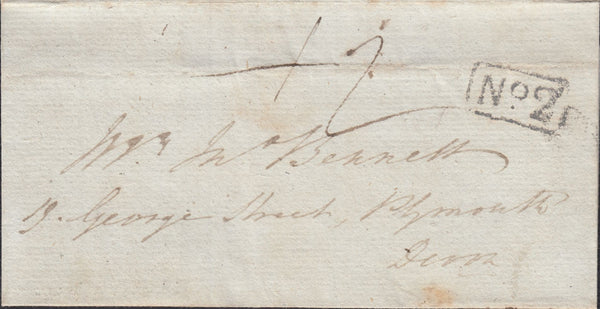 12
No 2
Jno Bennett
13. George Street, Plymouth
Devon